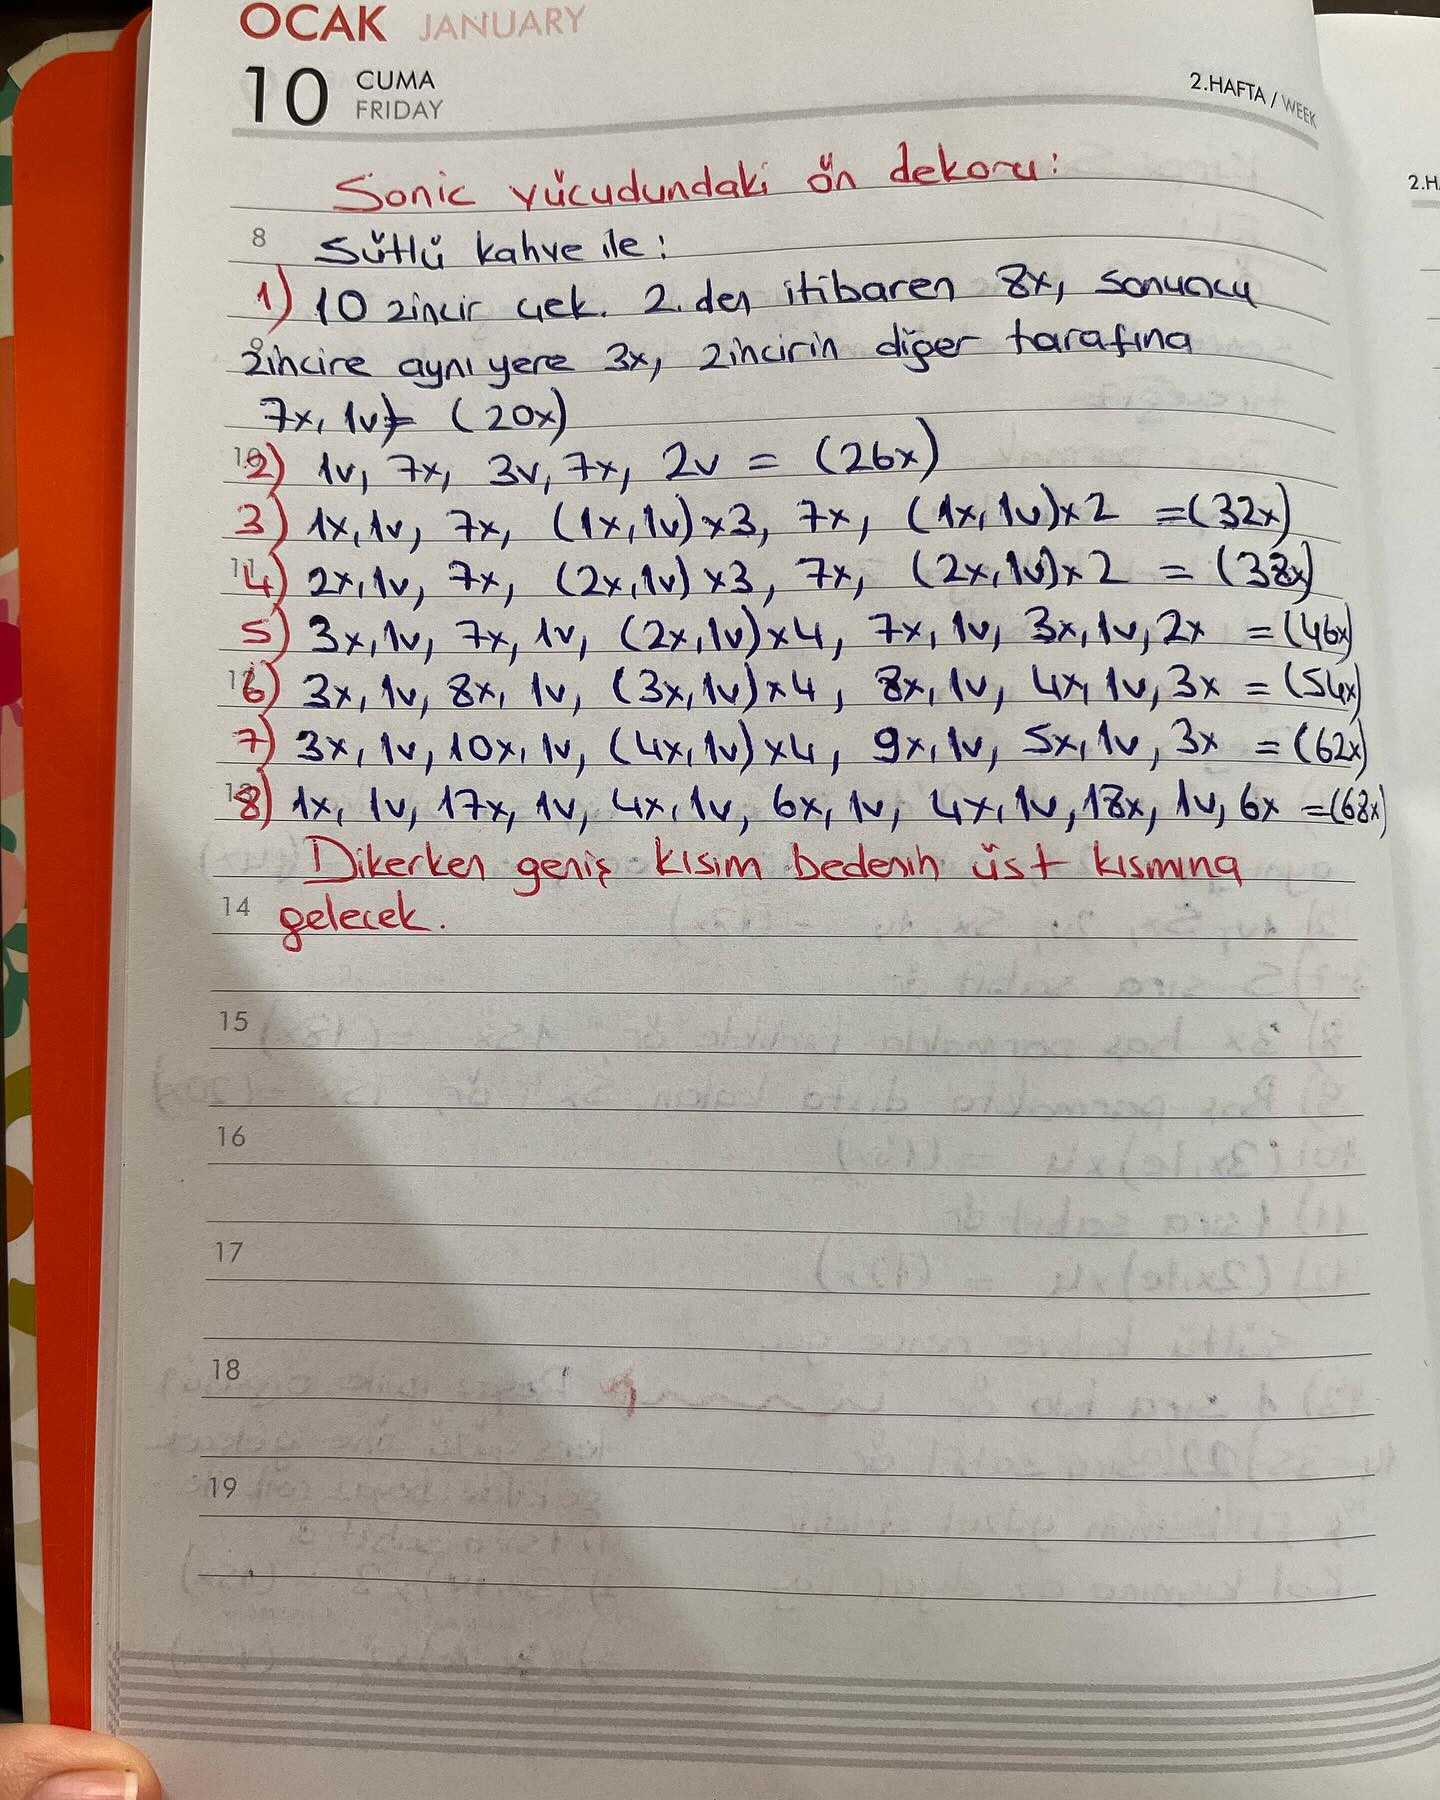 OCAK JANUARY
10 CUMA
FRIDAY
2.HAFTA / WEEK
2.H
Sonic vücudundaki ön dekoru:
8 Sütlü kahve ile:
1) 10 zincir çek. 2. den itibaren 8x, sonuncu
zincire aynı yere 3x, zincirin diğer tarafına
7x, 1v = (20x)
2) 1v, 7x, 3v, 7x, 2v = (26x)
3) 1x, 1v, 7x, (1x, 1v)x3, 7x, (1x, 1v)x2 =(32x)
4) 2x, 1v, 7x, (2x, 1v)x3, 7x, (2x, 1v)x2 = (38x)
5) 3x, 1v, 7x, 1v, (2x, 1v)x4, 7x, 1v, 3x, 1v, 2x = (46x)
6) 3x, 1v, 8x, 1v, (3x, 1v)x4, 8x, 1v, 4x, 1v, 3x = (54x)
7) 3x, 1v, 10x, 1v, (4x, 1v)x4, 9x, 1v, 5x, 1v, 3x = (62x)
8) 1x, 1v, 17x, 1v, 4x, 1v, 6x, 1v, 4x, 1v, 18x, 1v, 6x =(68x)
Dikerken geniş kısım bedenin üst kısmına
14 gelecek.
15
16
17
18
19